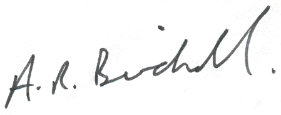 A. R. Birchall.